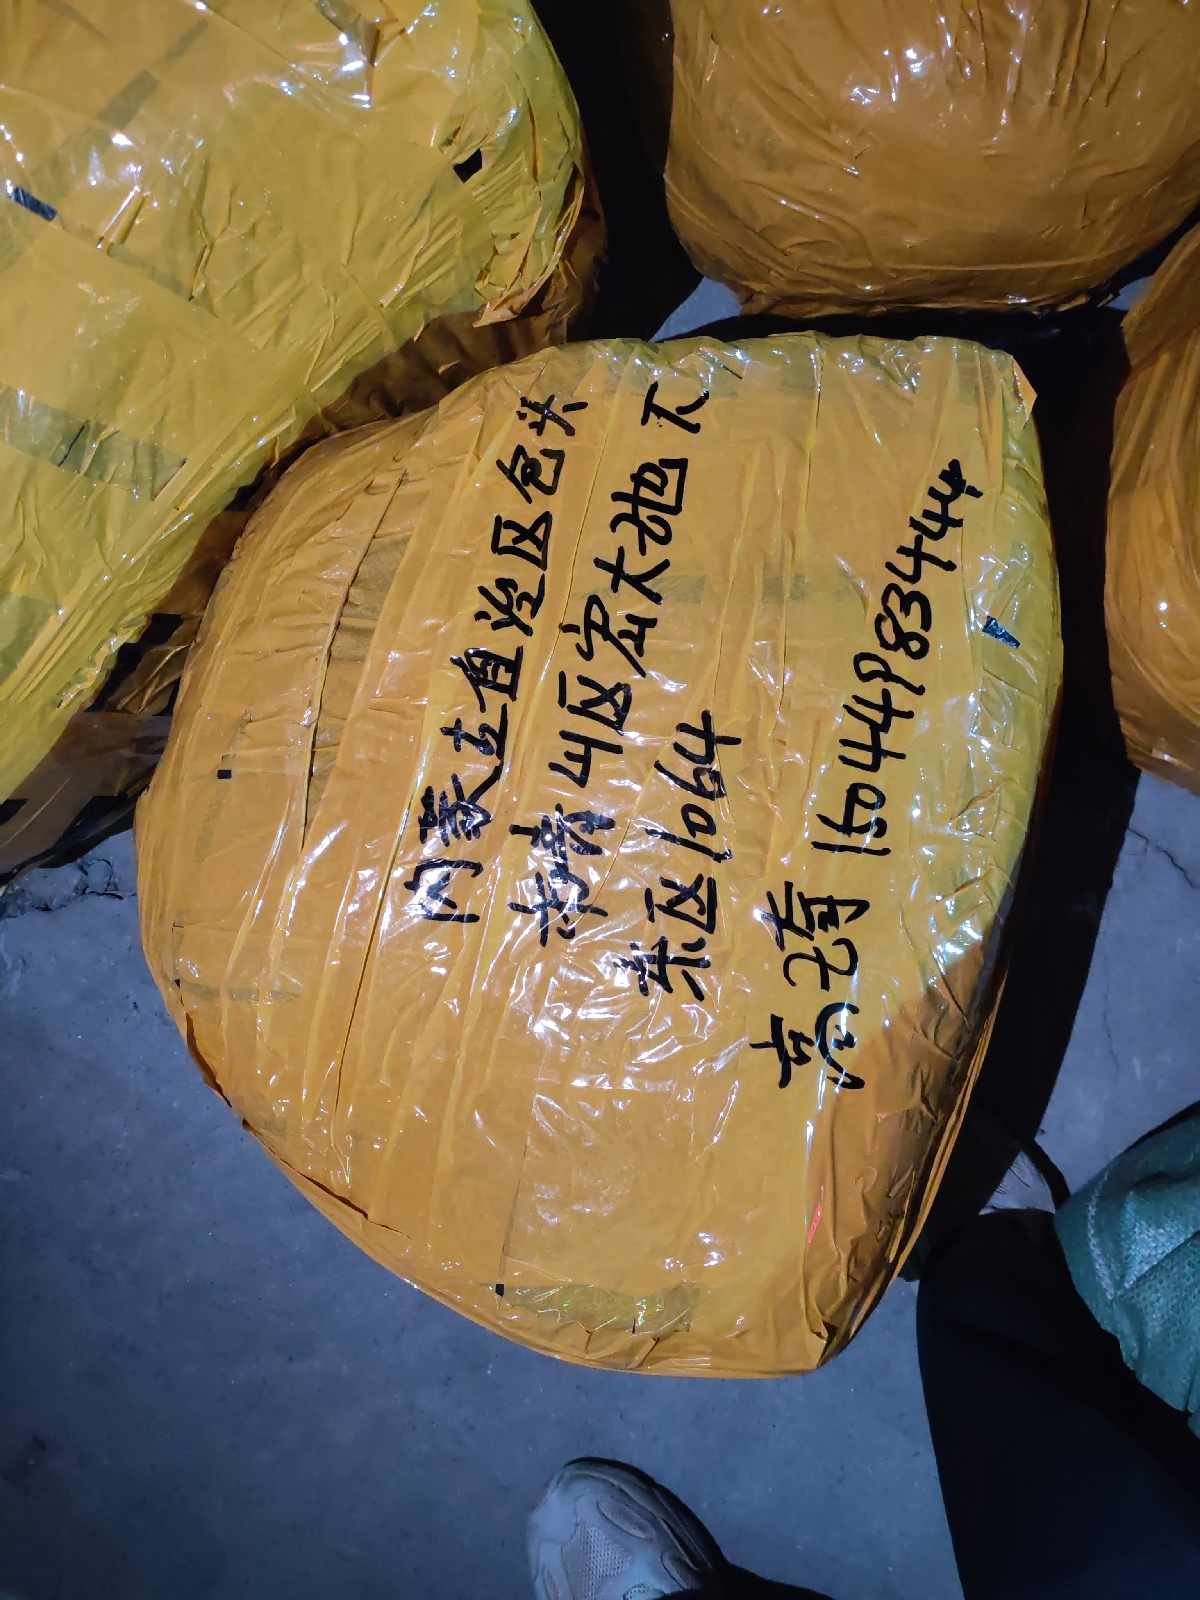 内蒙古自治区包头
市青山区宏大地下
东区1064
高 15044983444